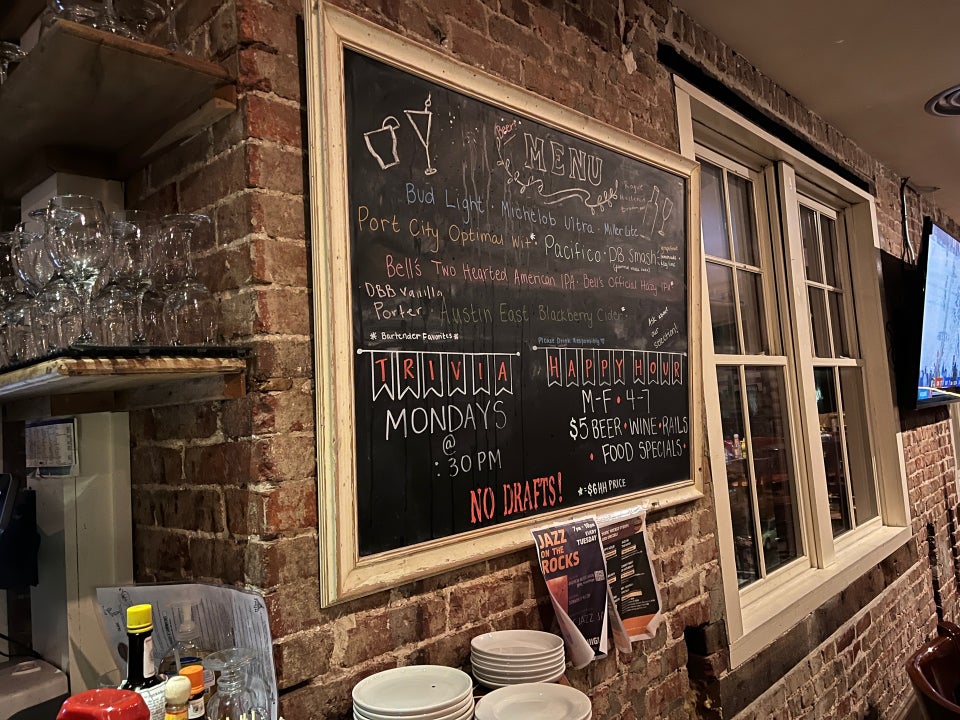 Beer
MENU
Bud Light · Michelob Ultra · Miller Lite
Port City Optimal Wit* Pacifico · DB Smash
Bell's Two Hearted American IPA · Bell's Official Hazy IPA*
DBB Vanilla
Porter · Austin East Blackberry Cider*
Ask about our seasonals!
* Bartender Favorites *
Please Drink Responsibly
TRIVIA
MONDAYS
@
:30 PM
HAPPY HOUR
M-F · 4-7
$5 BEER · WINE · RAILS
· FOOD SPECIALS ·
NO DRAFTS!
*=$6 HH PRICE
JAZZ
ON THE
ROCKS
7pm-10pm
EVERY
TUESDAY